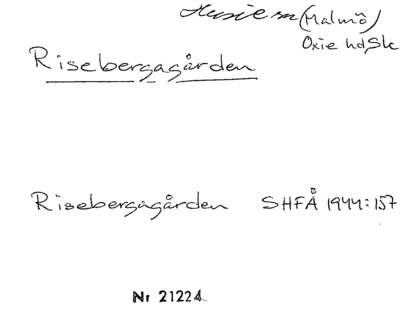 Husie sn (Malmö)
Oxie hd, Sk
Risebergagården
Risebergagården SHFÅ 1944:157
Nr 21224